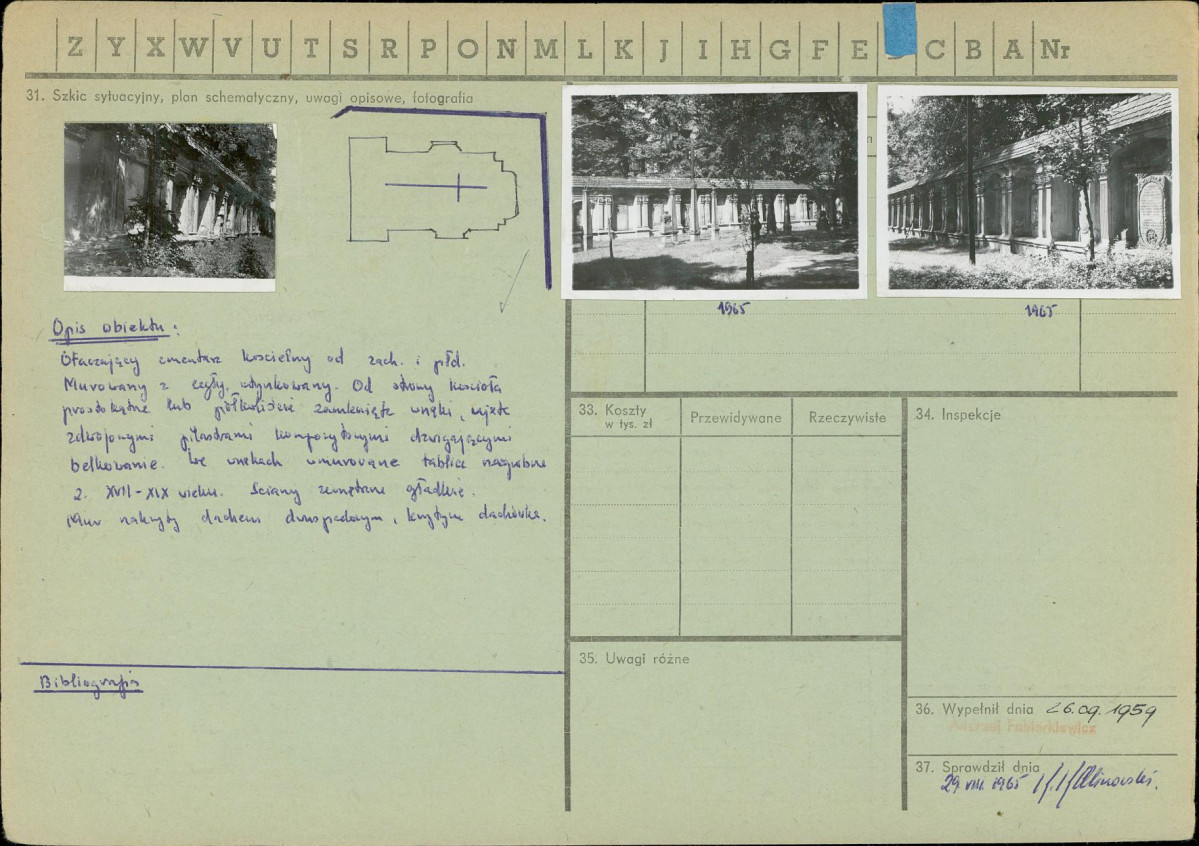 Z Y X W V U T S R P O N M L K J I H G F E C B A Nr
31. Szkic sytuacyjny, plan schematyczny, uwagi opisowe, fotografia
1965
1965
Opis obiektu:
Otaczający cmentarz kościelny od zach. i płd.
Murowany z cegły, otynkowany. Od strony kościoła
prostokątne lub półkoliście zamknięte wnęki, ujęte
zdwojonymi pilastrami kompozytowymi dźwigającymi
belkowanie. We wnękach wmurowane tablice nagrobne
z XVII-XIX wieku. Ściany zewnętrzne gładkie.
Mur nakryty dachem dwuspadowym, krytym dachówką.
Bibliografia
33. Koszty
w tys. zł
Przewidywane
Rzeczywiste
34. Inspekcje
35. Uwagi różne
36. Wypełnił dnia 26.09.1959
37. Sprawdził dnia
29. VIII. 1965